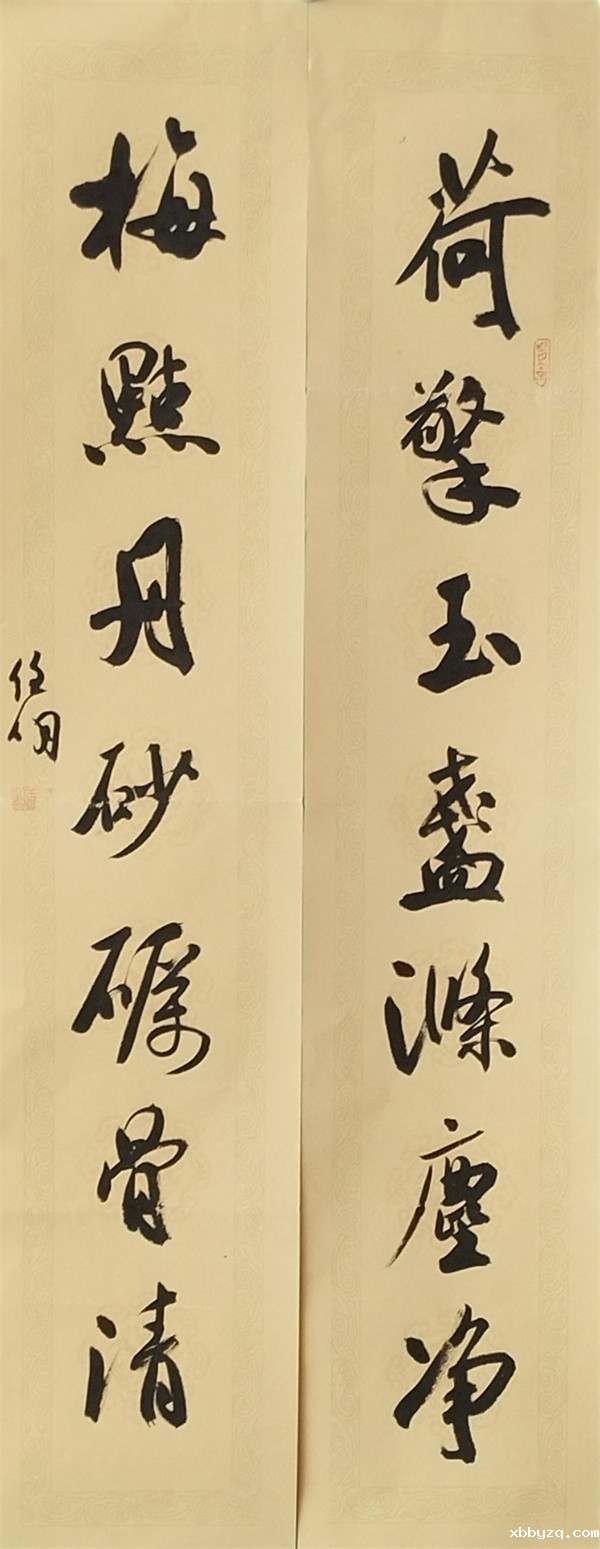 荷擎玉盏滌塵净
梅點丹砂礪骨清
xbbyzq.com